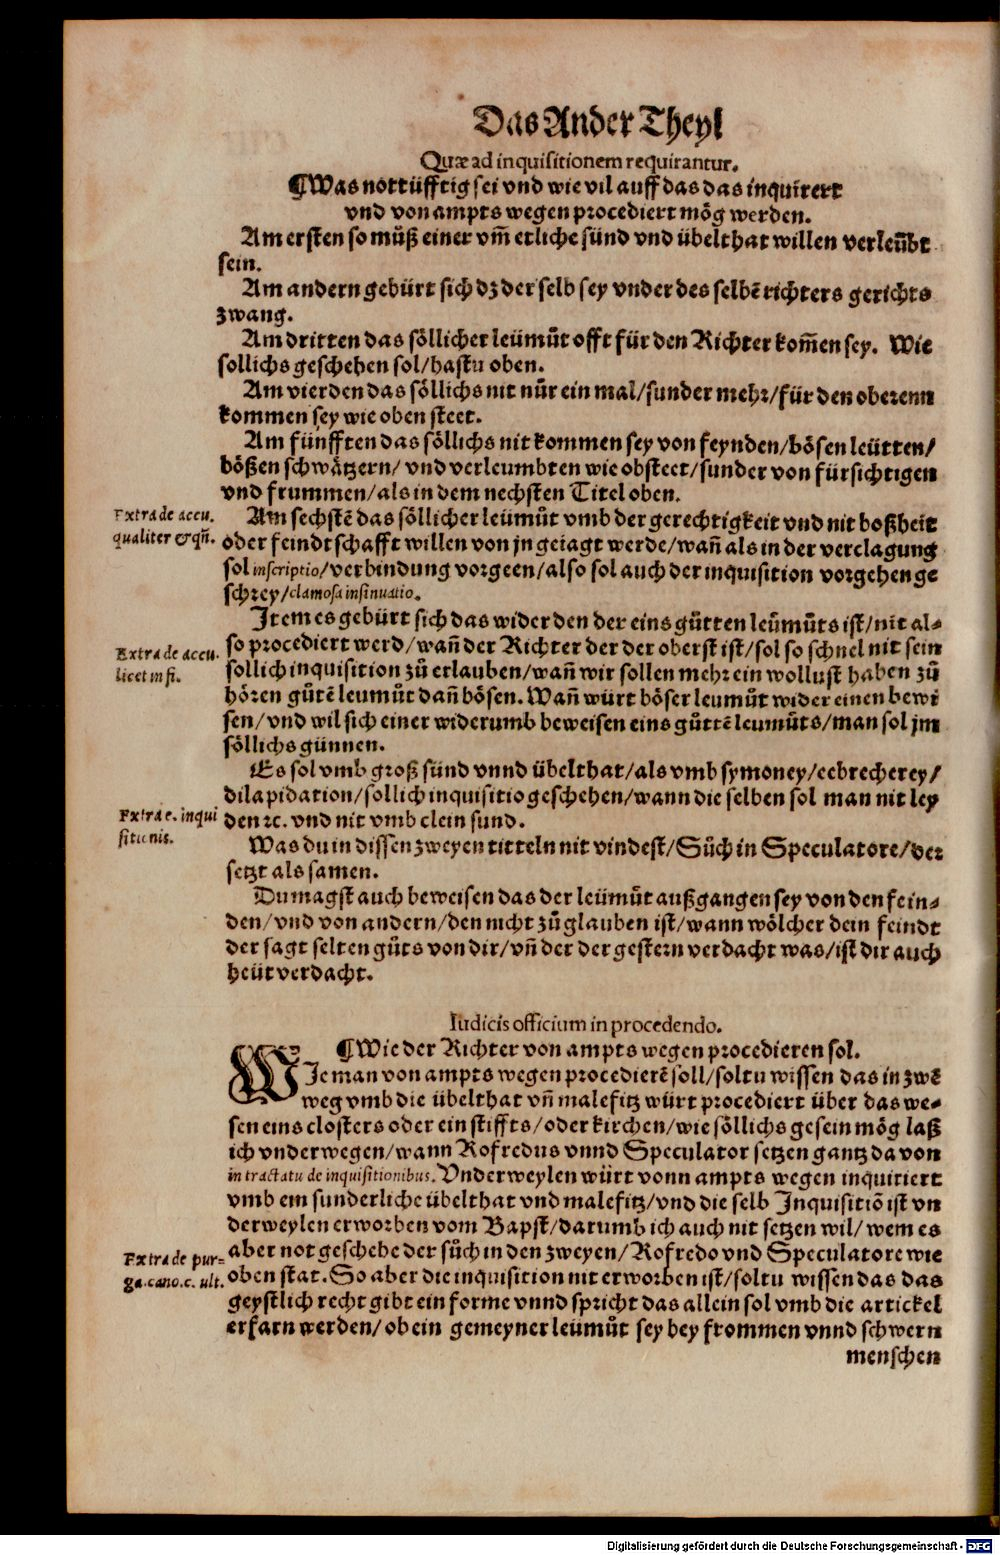 Das Ander Theyl
Quæ ad inquisitionem requirantur.
¶Was nottüfftig sei vnd wie vil auff das das inquirert
vnd von ampts wegen procediert mög werden.
Am ersten so můß einer vm̃ etliche sünd vnd übelthat willen verleũbt
sein.
Am andern gebürt sich dz der selb sey vnder des selbẽ richters gerichts
zwang.
Am dritten das söllicher leümůt offt für den Richter kom̃en sey. Wie
sollichs geschehen sol/hastu oben.
Am vierden das söllichs nit nůr ein mal/sunder mehr/für den oberenn
kommen sey wie oben steet.
Am fünfften das söllichs nit kommen sey von feynden/bösen leütten/
bößen schwätzern/ vnd verleumbten wie obsteet/sunder von fürsichtigen
vnd frummen/als in dem nechsten Titel oben.
Extra de accu.
qualiter & qñ.
Am sechstẽ das söllicher leümůt vmb der gerechtigkeit vnd nit boßheit
oder feindtschafft willen von jn geiagt werde/wañ als in der verclagung
sol inscriptio/verbindung vorgeen/also sol auch der inquisition vorgehen ge
schrey/clamosa insinuatio.
Item es gebürt sich das wider den der eins gůtten leümůts ist/nit al=
so procediert werd/wañ der Richter der der oberst ist/sol so schnel nit sein
Extra de accu.
licet in fi.
sollich inquisition zů erlauben/wañ wir sollen mehr ein wollust haben zů
hören gůtẽ leumůt dañ bösen. Wañ würt böser leumůt wider einen bewi
sen/vnd wil sich einer widerumb beweisen eins gůttẽ leumůts/man sol jm
söllichs günnen.
Es sol vmb groß sünd vnnd übelthat/als vmb symoney/eebrecherey/
dilapidation/sollich inquisitio geschehen/wann die selben sol man nit ley
Extra e. inqui
sitionis.
den ꝛc. vnd nit vmb clein sund.
Was du in dissen zweyen titteln nit vindest/Sůch in Speculatore/der
setzt alsamen.
Du magst auch beweisen das der leümůt außgangen sey von den fein=
den/vnd von andern/den nicht zůglauben ist/wann wölcher dein feindt
der sagt selten gůts von dir/vñ der der gestern verdacht was/ist dir auch
heüt verdacht.
Iudicis officium in procedendo.
¶Wie der Richter von ampts wegen procedieren sol.
WIe man von ampts wegen procedierẽ soll/soltu wissen das in zwẽ
weg vmb die übelthat vñ malefitz würt procediert über das we=
sen eins closters oder ein stiffts/oder kirchen/wie söllichs gesein mög laß
ich vnderwegen/wann Rofredus vnnd Speculator setzen gantz da von
in tractatu de inquisitionibus. Vnderweylen würt vonn ampts wegen inquiriert
vmb ein sunderliche übelthat vnd malefitz/vnd die selb Inquisitiõ ist vn
derweylen erworben vom Bapst/darumb ich auch nit setzen wil/ wem es
Extra de pur=
ga. cano. c. ult.
aber not geschehe der sůch in den zweyen/Rofredo vnd Speculatore wie
oben stat. So aber die inquisition nit erworben ist/soltu wissen das das
geystlich recht gibt ein forme vnnd spricht das allein sol vmb die artickel
erfarn werden/ ob ein gemeyner leümůt sey bey frommen vnnd schwern
menschen
Digitalisierung gefördert durch die Deutsche Forschungsgemeinschaft - DFG